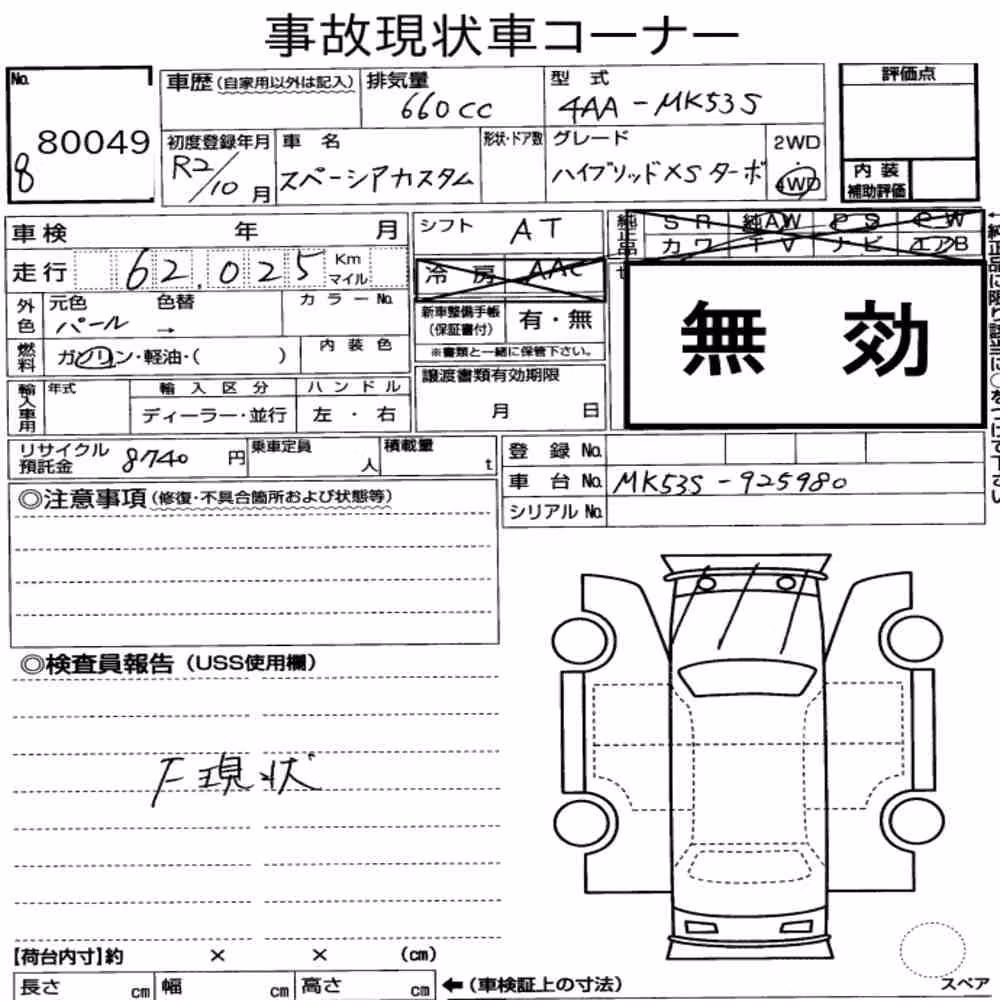 事故現状車コーナー
No. 80049
8
車歴(自家用以外は記入) 排気量 660cc 型式 4AA-MK53S 評価点
初度登録年月 R2/10月 車名 スペーシアカスタム 形状・ドア数 グレード ハイブリッドXSターボ 2WD・4WD 内装補助評価
車検 年 月 シフト AT 純正品 SR 純AW PS PW
走行 62,025 Km マイル 冷房 AAC カワ TV ナビ エアB
外色 元色 パール 色替 → カラーNo. 新車整備手帳(保証書付) 有・無 無効
燃料 ガソリン・軽油・( ) 内装色 ※書類と一緒に保管下さい。
輸入車用 年式 輸入区分 ハンドル 譲渡書類有効期限
ディーラー・並行 左・右 月 日
リサイクル預託金 8740円 乗車定員 人 積載量 t 登録No.
車台No. MK53S-925980
◎注意事項(修復・不具合箇所および状態等) シリアルNo.
◎検査員報告(USS使用欄)
F現状
【荷台内寸】約 × × (cm)
長さ cm 幅 cm 高さ cm ←(車検証上の寸法) スペア